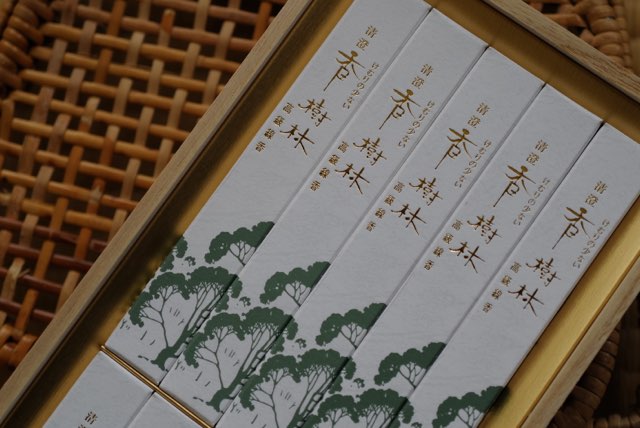 清澄
香樹林
けむりの少ない
高級線香
清澄
香樹林
けむりの少ない
高級線香
清澄
香樹林
けむりの少ない
高級線香
清澄
香樹林
けむりの少ない
高級線香
清澄
香樹林
けむりの少ない
高級線香
清澄
清澄